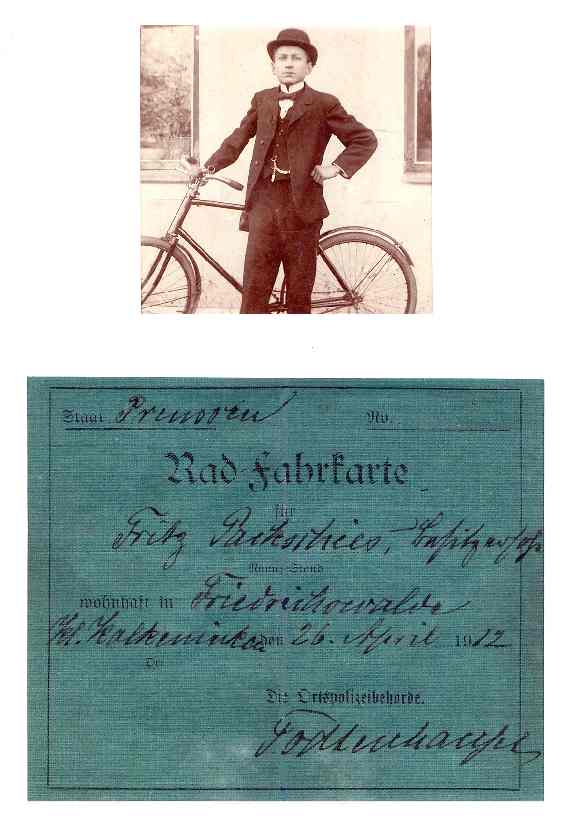 Staat Preussen No.
Rad-Fahrkarte
für
Fritz Packschies, Besitzersohn
Name, Stand
wohnhaft in Friedrichswalde
Kl. Kalkeninken den 26. April 1912
Ort
Die Ortspolizeibehörde.